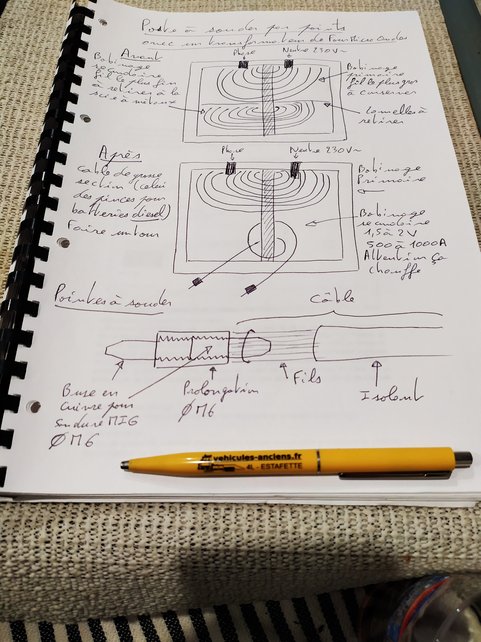 Poste à souder par points
avec un transformateur de Four Micro Ondes
Avant
Phase
Neutre 230V~
Bobinage
secondaire
fil le plus fin
à retirer à la
scie à métaux
Bobinage
primaire
fil le plus gros
à conserver
Lamelles à
retirer
Après
Phase
Neutre 230V~
Cable de grosse
section (celui
des pinces pour
batteries diesel)
Faire un tour
Bobinage
Primaire
Bobinage
secondaire
1,5 à 2V
500 à 1000A
Attention ça
chauffe
Pointes à souder
Câble
Buse en
cuivre pour
soudure MIG
Ø M6
Prolongation
Ø M6
Fils
Isolant
vehicules-anciens.fr
4L - ESTAFETTE